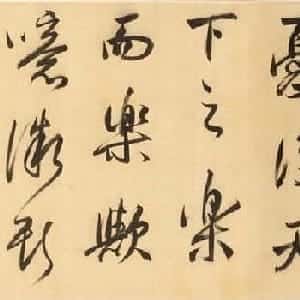 憂後天
下之樂
而樂歟
噫微斯